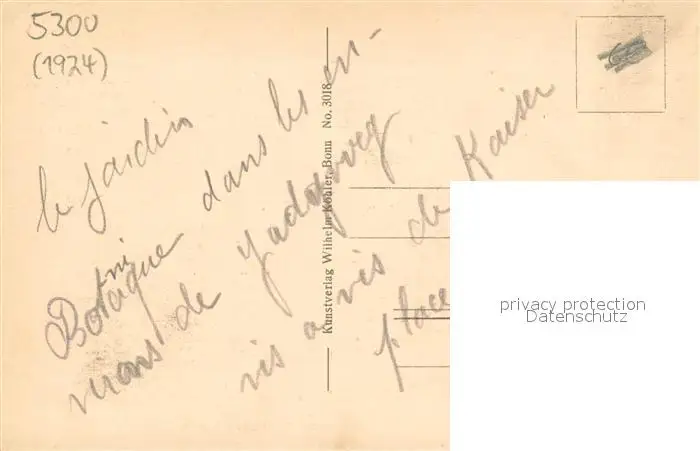 5300
(1924)
le jardin
Botanique dans les en-
virons de Jadgweg
vis a vis de Kaiser
place
Kunstverlag Wilhelm Köhler, Bonn No. 3018
privacy protection
Datenschutz